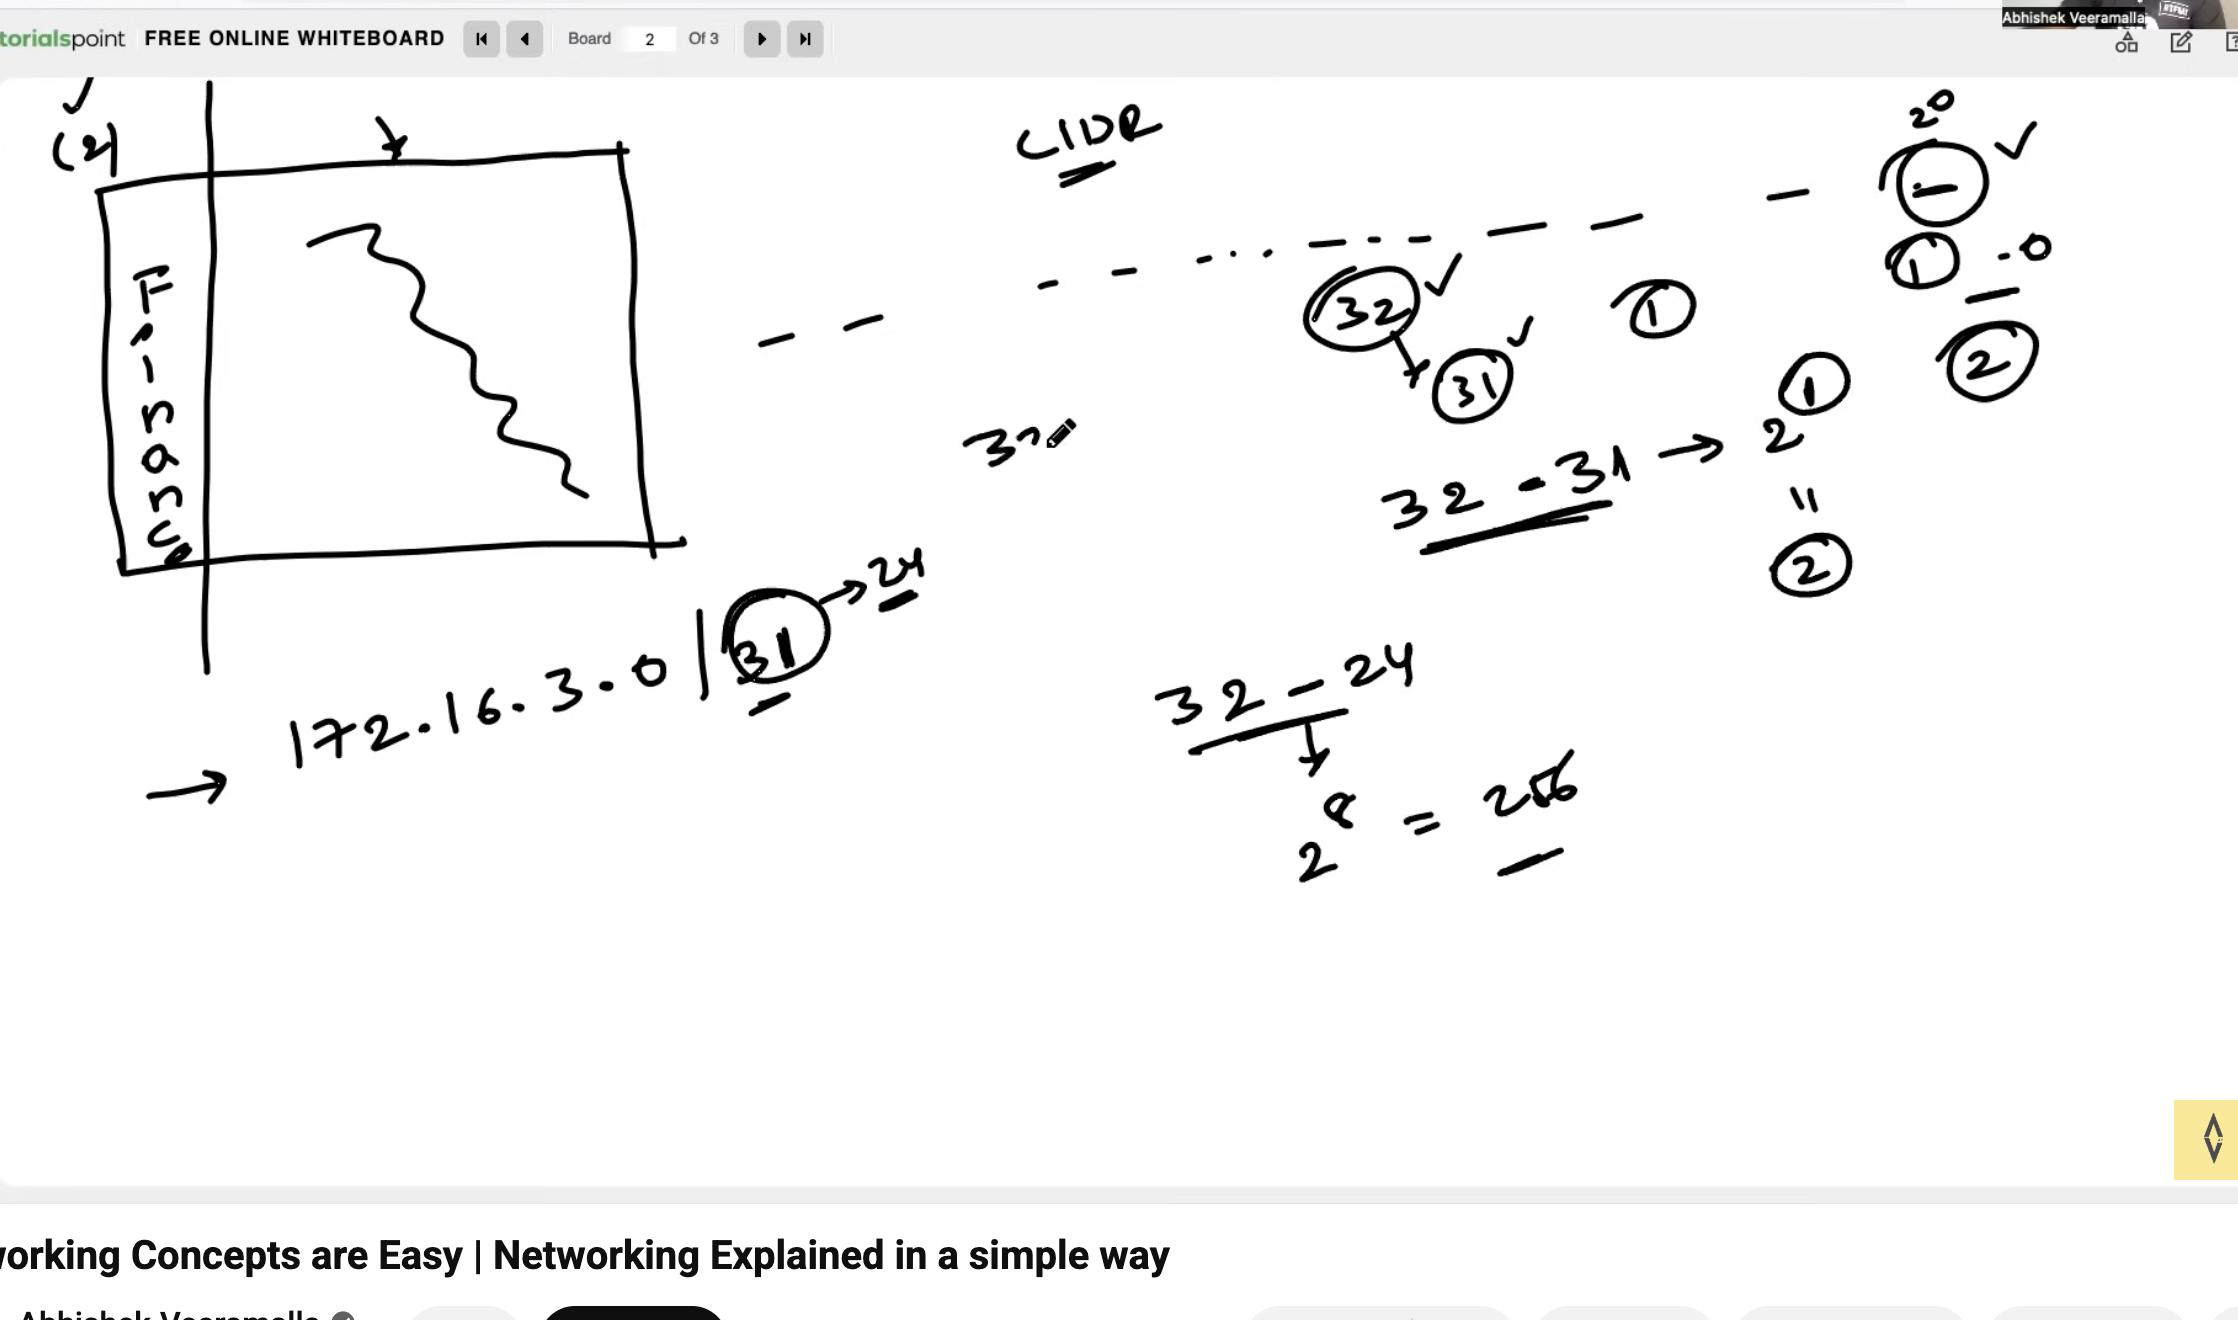 torialspoint FREE ONLINE WHITEBOARD Board 2 Of 3
Abhishek Veeramalla
(2)
Finance
CIDR
2⁰
1 - 0
2
32
31
1
32 - 31 → 2¹
=
2
172.16.3.0 / 31 → 24
32 - 24
2⁸ = 256
working Concepts are Easy | Networking Explained in a simple way
Abhishek Veeramalla